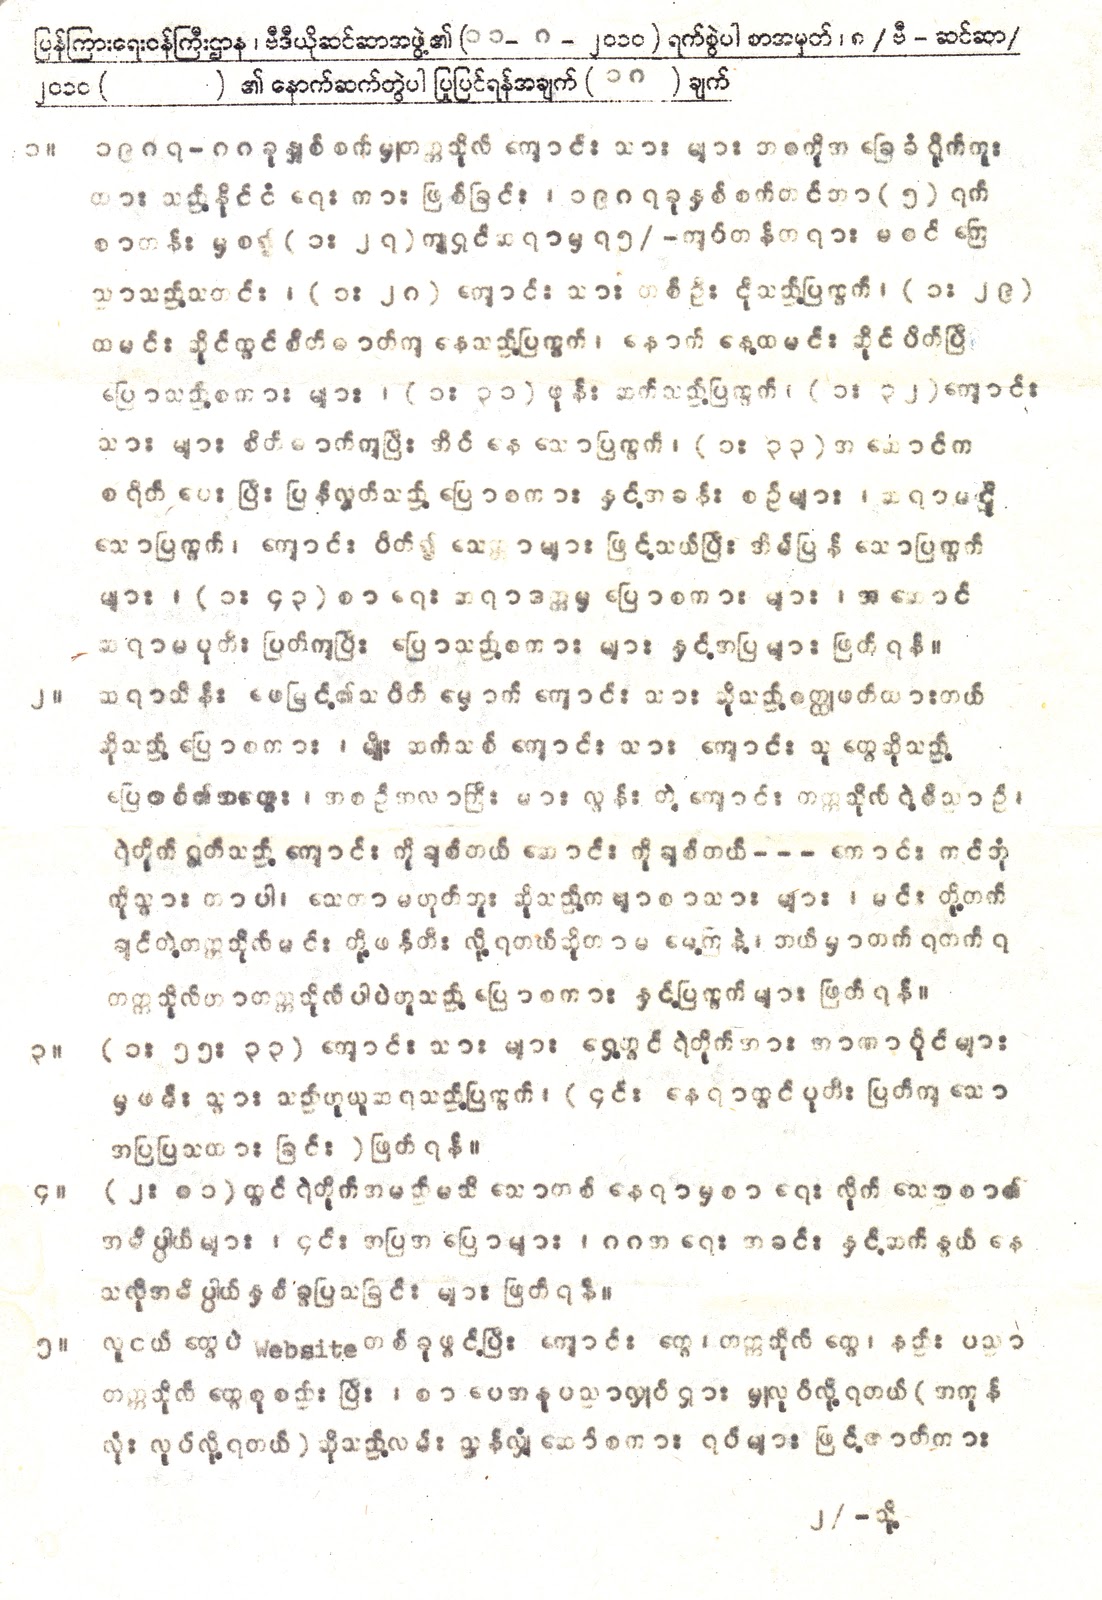 ပြန်ကြားရေးဝန်ကြီးဌာန ၊ ဗီဒီယိုဆင်ဆာအဖွဲ့၏ (၁၁- ၈ - ၂၀၁၀ ) ရက်စွဲပါ စာအမှတ် ၊ ၈ / ဗီ - ဆင်ဆာ/
၂၀၁၀ ( ) ၏ နောက်ဆက်တွဲပါ ပြုပြင်ရန်အချက် ( ၁၈ ) ချက်
၁။ ၁၉၈၇-၈၈ခုနှစ်စက်မှုတက္ကသိုလ် ကျောင်းသားများ အစကိုအခြေခံရိုက်ကူး
ထားသည့်နိုင်ငံရေးကားဖြစ်ခြင်း ၊ ၁၉၈၇ခုနှစ်စက်တင်ဘာ(၅)ရက်
စာတန်းမှစ၍(၁း၂၇)ကျူရှင်ဆရာမှ၇၅/-ကျပ်တန်တရားမဝင်ကြေ
ညာသည့်သတင်း ၊ (၁း၂၈) ကျောင်းသားတစ်ဦးငိုသည့်ပြကွက်၊ (၁း၂၉)
ထမင်းဆိုင်တွင်စိတ်ဓာတ်ကျနေသည့်ပြကွက်၊ နောက်နေ့ထမင်းဆိုင်ပိတ်ပြီ
ပြောသည့်စကားများ ၊ (၁း၃၁)ဖုန်းဆက်သည့်ပြကွက်၊ (၁း၃၂)ကျောင်း
သားများစိတ်ဓာက်ကျပြီးအိပ်နေသောပြကွက်၊ (၁း၃၃)အဆောင်က
စရိတ်ပေးပြီးပြန်လွှတ်သည့်ပြောစကားနှင့်အခန်းစဉ်များ ၊ ဆရာမငို
သောပြကွက်၊ ကျောင်းပိတ်၍ သေတ္တာများဖြင့်သယ်ပြီးအိမ်ပြန်သောပြကွက်
များ ၊ (၁း၄၃)စာရေးဆရာဒတ္တမှပြောစကားများ ၊ အဆောင်
ဆရာမပုတီးပြတ်ကျပြီး ပြောသည့်စကားများနှင့်အပြများဖြတ်ရန်။
၂။ ဆရာသိန်းဖေမြင့်၏သပိတ်မှောက်ကျောင်းသားဆိုသည့်ဝတ္ထုဖတ်ထားတယ်
ဆိုသည့်ပြောစကား ၊ မျိုးဆက်သစ်ကျောင်းသား ကျောင်းသူတွေဆိုသည့်
ပြေစစ်၏အတွေး ၊ အစဉ်အလာကြီးမားလွန်းတဲ့ကျောင်းတက္ကသိုလ်ရဲ့ဝိညာဉ်၊
ရဲတိုက်ရွတ်သည့်ကျောင်းကိုချစ်တယ်ဆောင်းကိုချစ်တယ်--- ကောင်းကင်ဘုံ
ကိုသွားတာပါ၊ သေတာမဟုတ်ဘူးဆိုသည့်ကဗျာစာသားများ ၊ မင်းတို့တက်
ချင်တဲ့တက္ကသိုလ်မင်းတို့ဖန်တီးလို့ရတယ်ဆိုတာမမေ့ကြနဲ့၊ ဘယ်မှာတက်ရတက်ရ
တက္ကသိုလ်ဟာတက္ကသိုလ်ပါပဲဟူသည့်ပြောစကားနှင့်ပြကွက်များဖြတ်ရန်။
၃။ (၁း၅၅း၃၃) ကျောင်းသားများရှေ့တွင်ရဲတိုက်အားအာဏာပိုင်များ
မှဖမ်းသွားသည်ဟုယူဆရသည့်ပြကွက်၊ (၎င်းနေရာတွင်ပုတီးပြတ်ကျသော
အပြပြသထားခြင်း )ဖြတ်ရန်။
၄။ (၂း၈၁)တွင်ရဲတိုက်အမည်မသိသောတစ်နေရာမှစာရေးလိုက်သောစာ၏
အဓိပ္ပါယ်များ ၊ ၎င်းအပြအပြောများ ၊ ၈၈အရေးအခင်းနှင့်ဆက်နွယ်နေ
သလိုအဓိပ္ပါယ်နှစ်ခွပြသခြင်းများဖြတ်ရန်။
၅။ လူငယ်တွေပဲ Website တစ်ခုဖွင့်ပြီး ကျောင်းတွေ၊တက္ကသိုလ်တွေ၊ နည်းပညာ
တက္ကသိုလ်တွေစုစည်းပြီး ၊ စာပေအနုပညာလှုပ်ရှားမှုလုပ်လို့ရတယ်(အကုန်
လုံးလုပ်လို့ရတယ်)ဆိုသည့်လမ်းညွှန်လှုံ့ဆော်စကားရပ်များဖြင့်ဇာတ်ကား
၂/-သို့